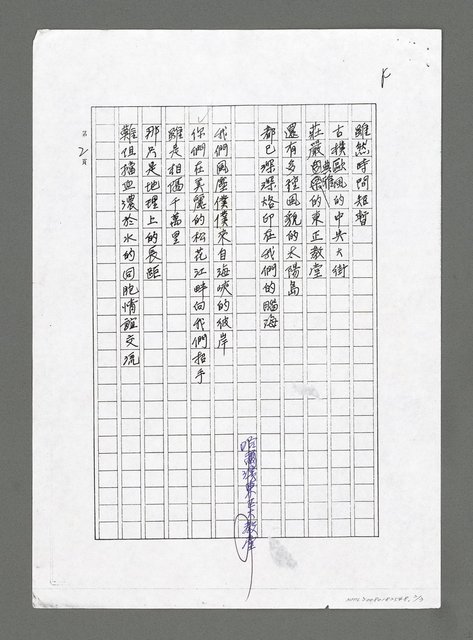 雖然時間短暫
古樸歐風的中央大街
莊嚴典雅的東正教堂
還有多種風貌的太陽島
都已深深烙印在我們的腦海
我們風塵僕僕來自海峽的彼岸
你們在美麗的松花江畔向我們招手
雖是相隔千萬里
那只是地理上的長距
難阻擋血濃於水的同胞情誼交流
哈爾濱東正大教堂
第2頁